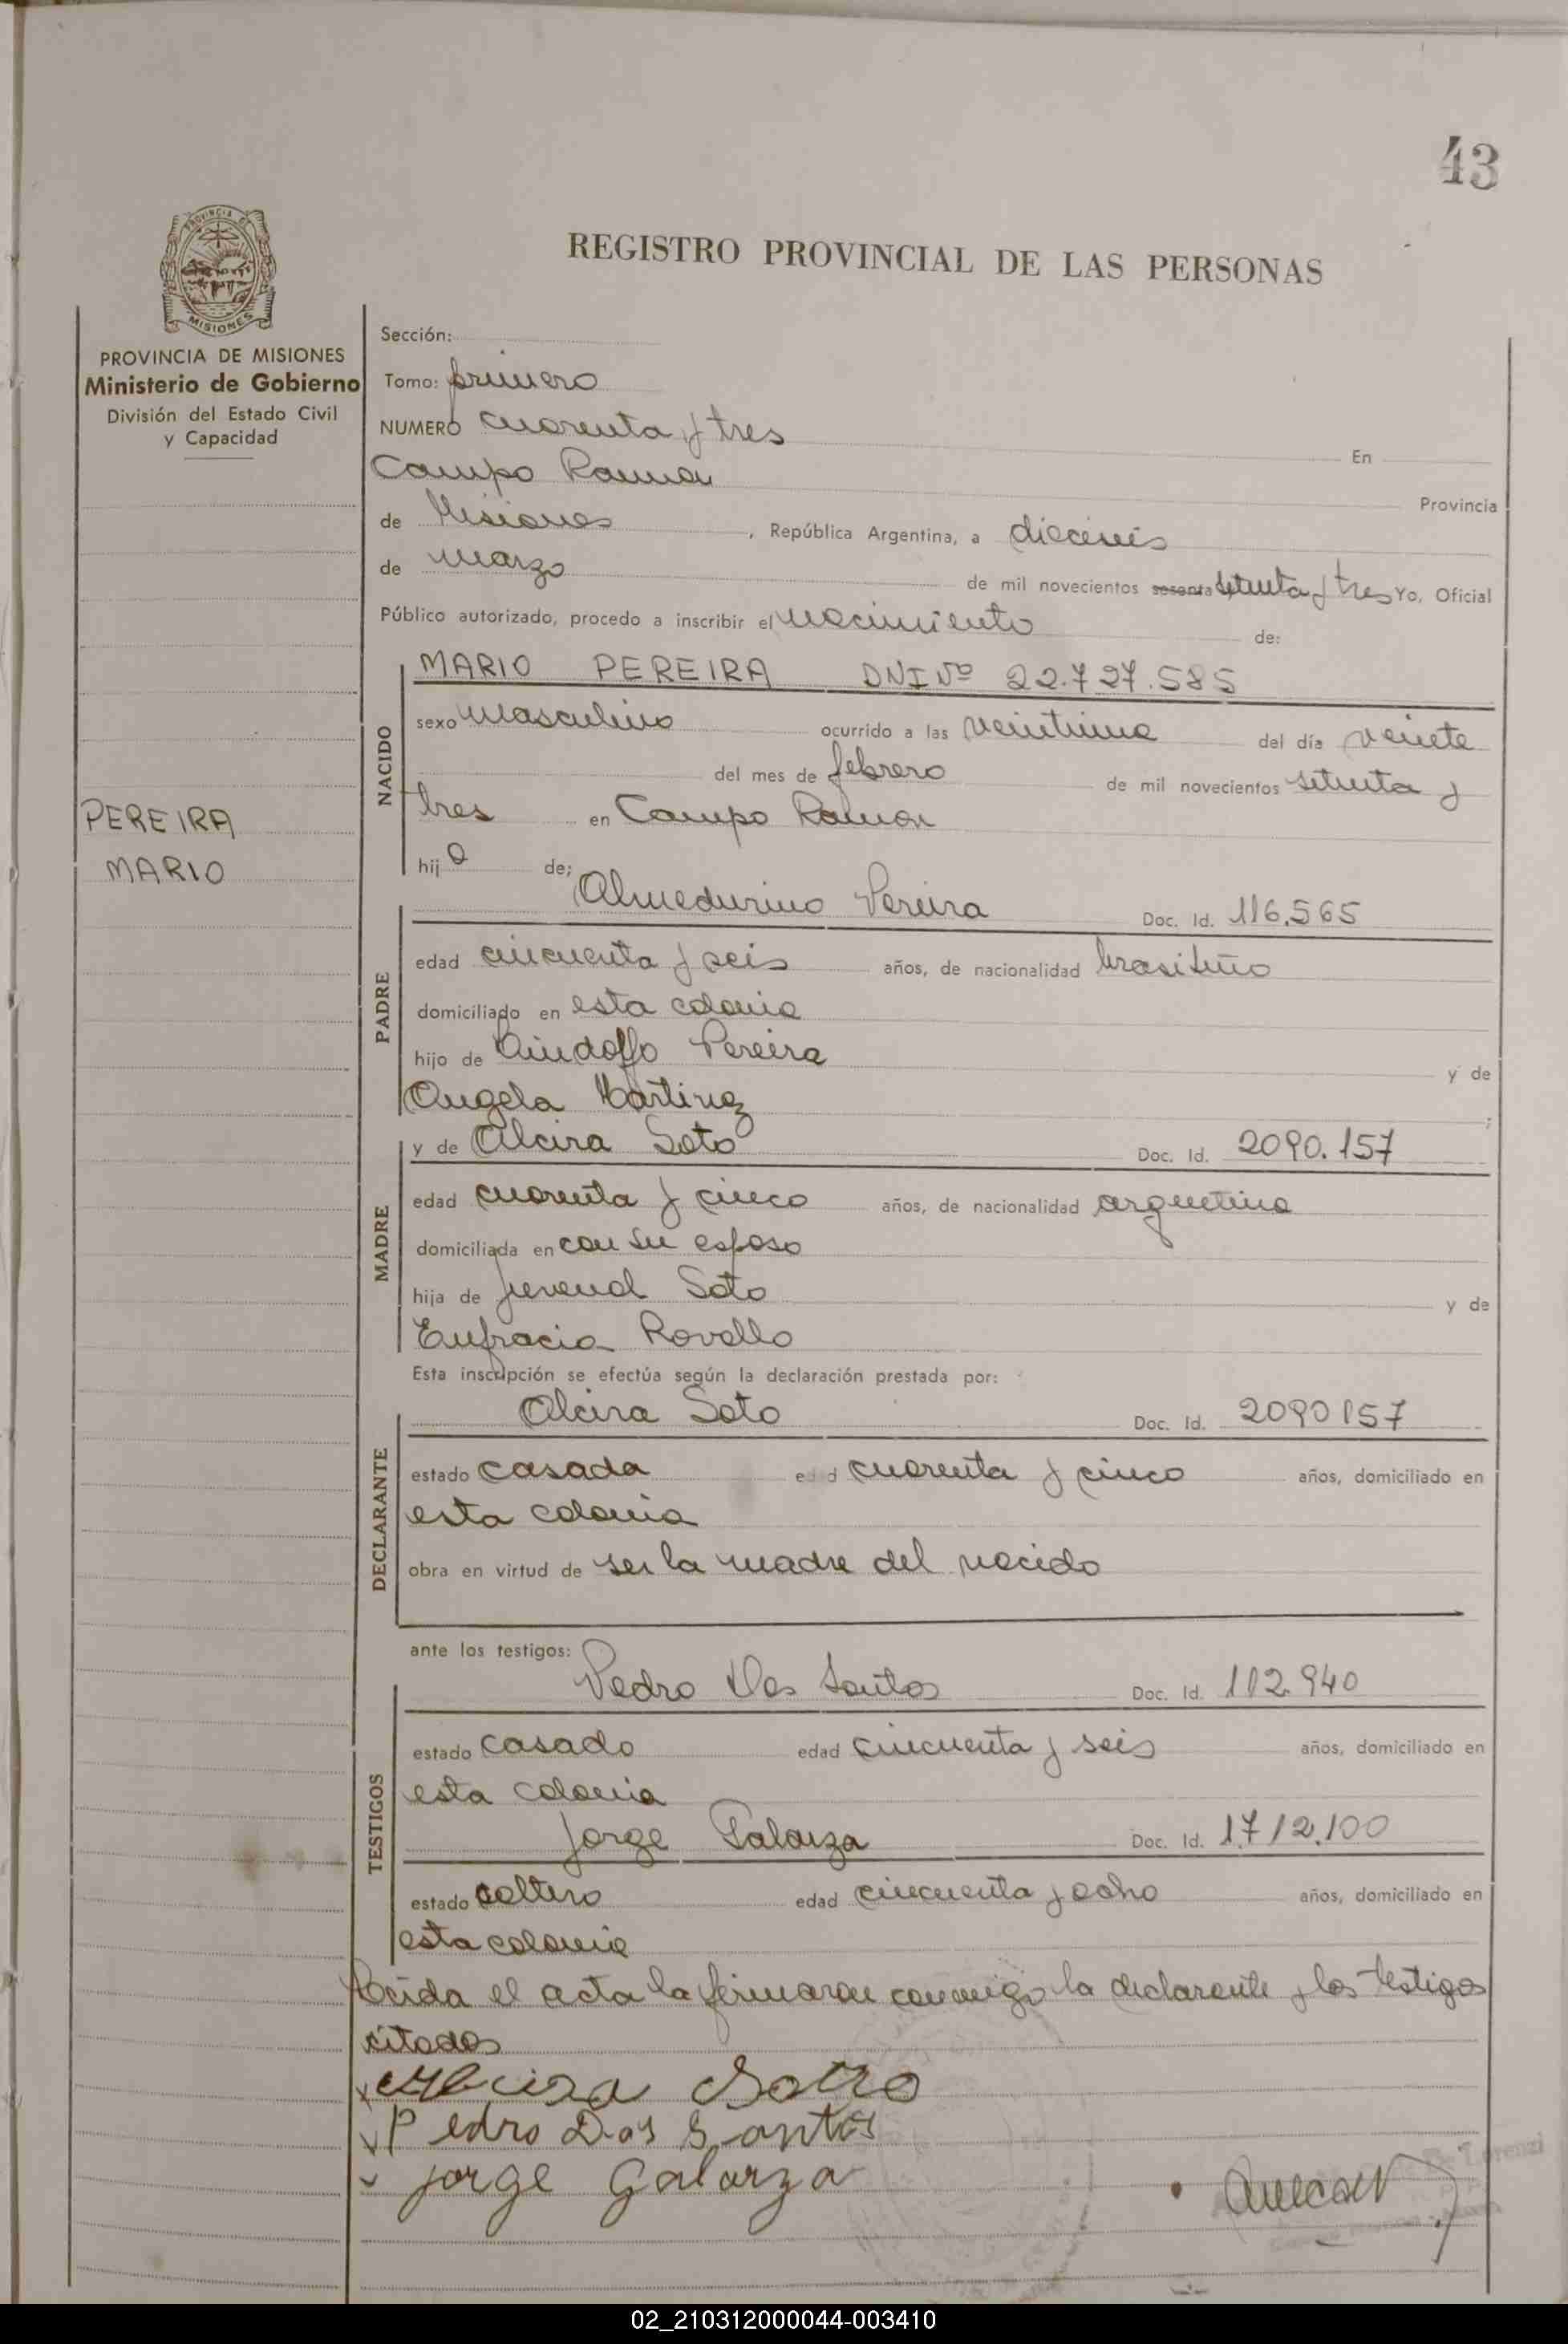 43
PROVINCIA DE
MISIONES
REGISTRO PROVINCIAL DE LAS PERSONAS
PROVINCIA DE MISIONES
Ministerio de Gobierno
División del Estado Civil
y Capacidad
PEREIRA
MARIO
Sección:
Tomo: primero
NUMERO cuarenta y tres
En
Campo Ramon
Provincia
de Misiones, República Argentina, a dieciseis
de marzo de mil novecientos sesenta setenta y tres Yo, Oficial
Público autorizado, procedo a inscribir el nacimiento de:
NACIDO
MARIO PEREIRA DNI Nº 22.727.585
sexo masculino ocurrido a las veintiuna del día veinte
del mes de febrero de mil novecientos setenta y
tres en Campo Ramon
hijo de;
PADRE
Almedurino Pereira Doc. Id. 116.565
edad cincuenta y seis años, de nacionalidad brasileño
domiciliado en esta colonia
hijo de Lindolfo Pereira y de
Angela Martinez;
MADRE
y de Alcira Soto Doc. Id. 2090.157
edad cuarenta y cinco años, de nacionalidad argentina
domiciliada en con su esposo
hija de Juvenal Soto y de
Eufracia Rovallo
Esta inscripción se efectúa según la declaración prestada por:
DECLARANTE
Alcira Soto Doc. Id. 2090157
estado casada edad cuarenta y cinco años, domiciliado en
esta colonia
obra en virtud de ser la madre del nacido
ante los testigos:
TESTIGOS
Pedro Dos Santos Doc. Id. 112.940
estado casado edad cincuenta y seis años, domiciliado en
esta colonia
Jorge Galarza Doc. Id. 1.712.100
estado soltero edad cincuenta y ocho años, domiciliado en
esta colonia
Leida el acta la firmaron conmigo la declarante y los testigos
citados
Alcira Sotto
Pedro Dos Santos
Jorge Galarza
Lorenzi
02_210312000044-003410